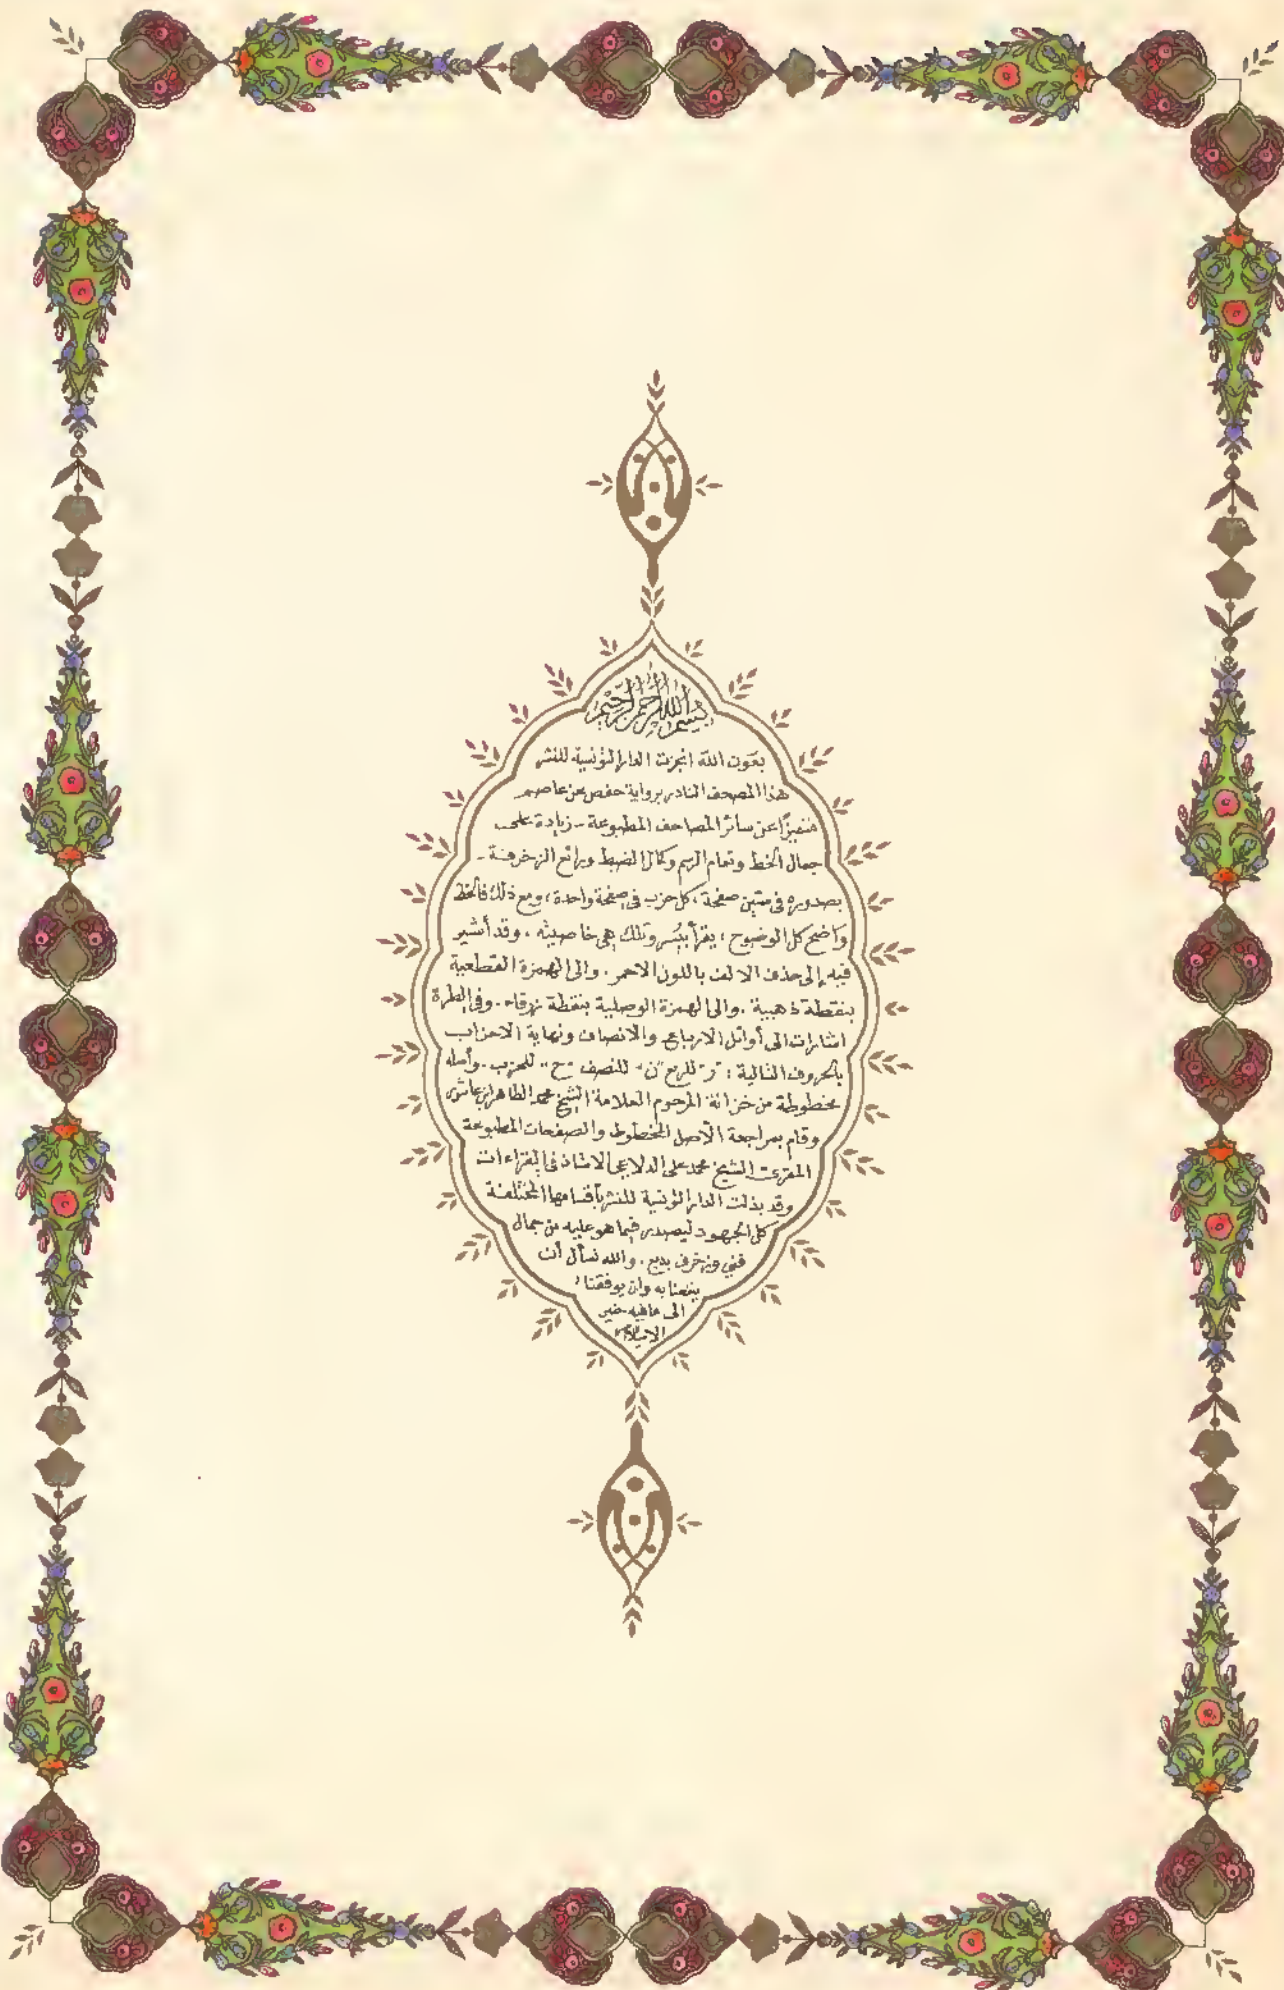 بسم الله الرحمن الرحيم
بعون الله انجزت الدار التونسية للنشر
هذا المصحف النادر برواية حفص عن عاصم
متميزًا عن سائر المصاحف المطبوعة - زيادة على
جمال الخط وتمام الرسم وكمال الضبط ورائع الزخرفة -
بصدوره في ستين صفحة، كل حزب في صفحة واحدة، ومع ذلك فالخط
واضح كل الوضوح، يقرأ بيُسر وتلك هي خاصيته. وقد أشير
فيه إلى حذف الالف باللون الاحمر. والى الهمزة القطعية
بنقطة ذهبية. والى الهمزة الوصلية بنقطة زرقاء. وفي الطرة
اشارات الى أوائل الارباع والانصاف ونهاية الاحزاب
بالحروف التالية: "ر" للربع "ن" للنصف "ح" للحزب. وأصله
مخطوطة من خزانة المرحوم العلامة الشيخ محمد الطاهر ابن عاشور
وقام بمراجعة الأصل المخطوط والصفحات المطبوعة
المقرئ الشيخ محمد علي الدلاعي الاستاذ في القراءات
وقد بذلت الدار التونسية للنشر بأقسامها المختلفة
كل الجهود ليصدر فيما هو عليه من جمال
فني وزخرف بديع. والله نسأل أن
ينفعنا به وان يوفقنا
الى ما فيه خير
الاسلام